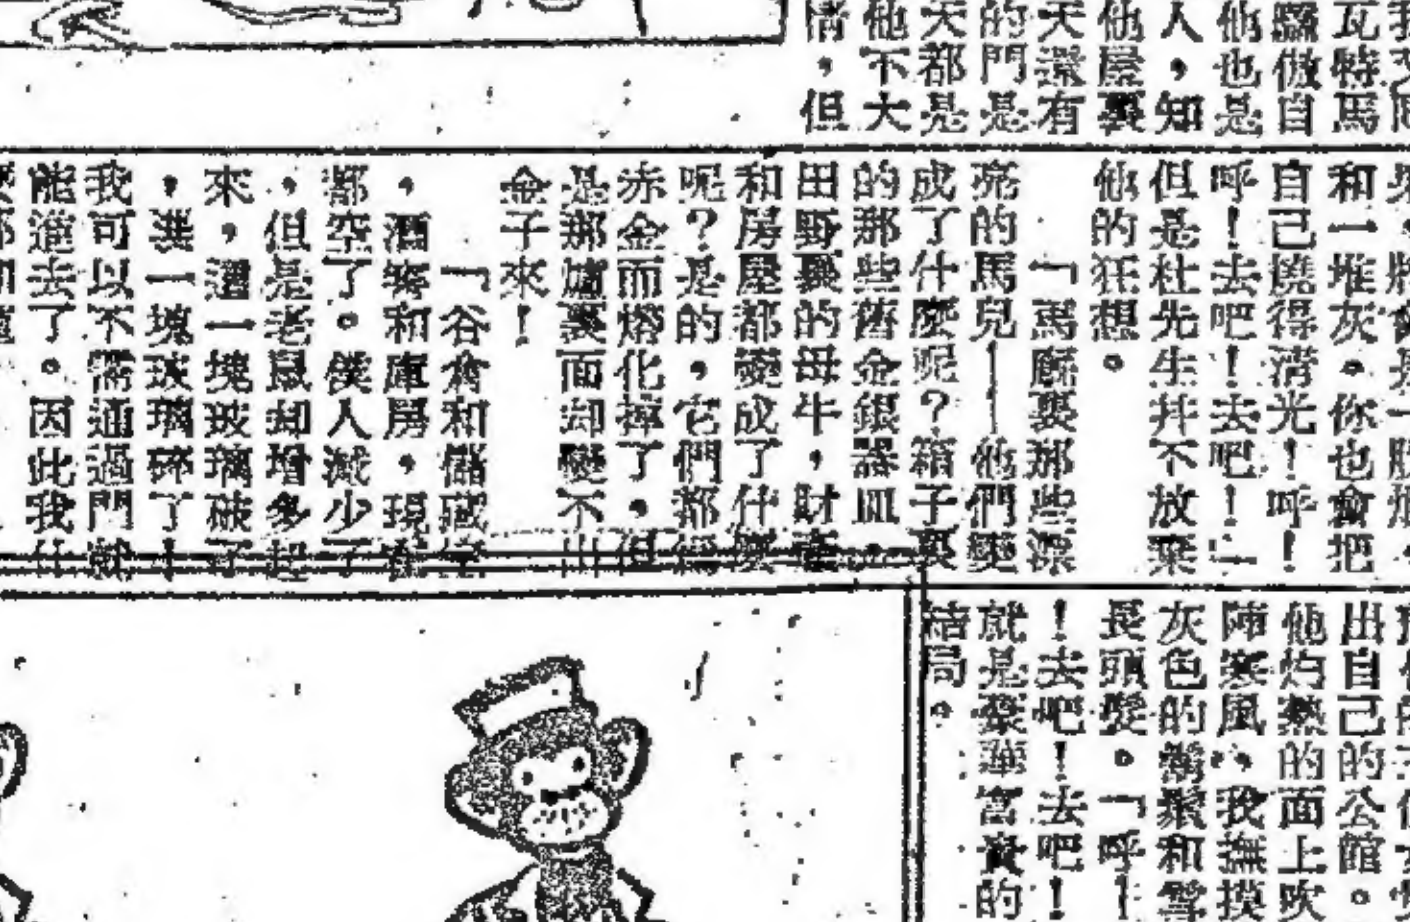 瓦特馬
倣自
他也是
人，知
他屋裏
天還有
的門是
天都是
他不大
情，但
和一堆灰。你也會把
自己燒得淸光！呼！
呼！去吧！去吧！」
但是杜先生幷不放棄
他的狂想。
「馬廐裏那些漂
亮的馬兒——他們變
成了什麼呢？箱子裏
的那些舊金銀器皿，
田野裏的母牛，財產
和房屋都變成了什麼
呢？是的，它們都
赤金而熔化掉了，但
是那爐裏面却變不出
金子來！
「谷倉和儲藏室
，酒窖和庫房，現在
都空了。僕人減少了
，但是老鼠却增多起
來，這一塊玻璃破了
，那一塊玻璃碎了！
我可以不需通過門就
能進去了。因此我什
出自己的公館。
他灼熱的面上吹
陣寒風，我撫摸
灰色的鬍鬚和
長頭髮。「呼！
！去吧！去吧！
就是榮華富貴的
結局。